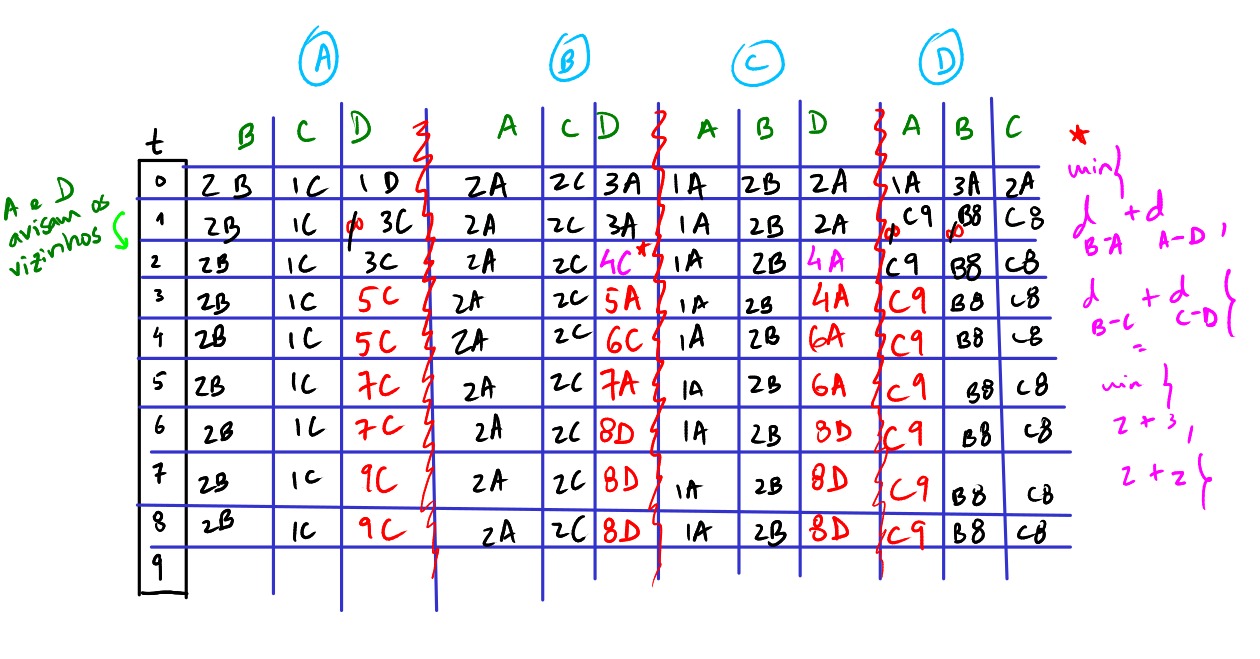 A B C D
t B C D A C D A B D A B C
0 2B 1C 1D 2A 2C 3A 1A 2B 2A 1A 3A 2A
1 2B 1C ∞ 3C 2A 2C 3A 1A 2B 2A ∞ C9 ∞ B8 C8
2 2B 1C 3C 2A 2C 4C* 1A 2B 4A C9 B8 C8
3 2B 1C 5C 2A 2C 5A 1A 2B 4A C9 B8 C8
4 2B 1C 5C 2A 2C 6C 1A 2B 6A C9 B8 C8
5 2B 1C 7C 2A 2C 7A 1A 2B 6A C9 B8 C8
6 2B 1C 7C 2A 2C 8D 1A 2B 8D C9 B8 C8
7 2B 1C 9C 2A 2C 8D 1A 2B 8D C9 B8 C8
8 2B 1C 9C 2A 2C 8D 1A 2B 8D C9 B8 C8
9
A e D
avisam os
vizinhos
*
min{
d + d
B-A A-D ,
d + d }
B-C C-D
=
min {
2 + 3,
2 + 2}